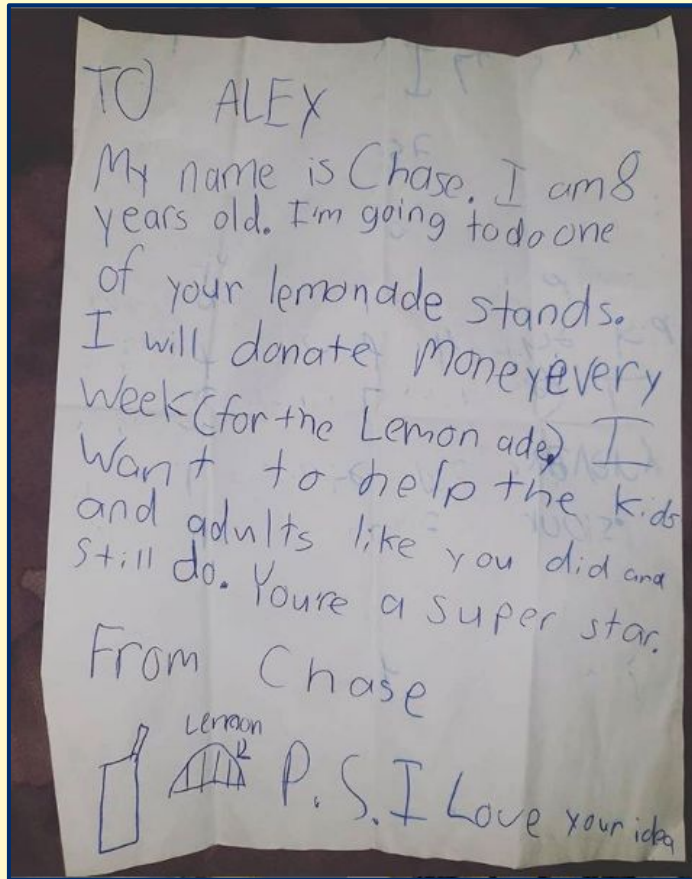 TO ALEX
My name is Chase. I am 8
years old. I'm going to do one
of your lemonade stands.
I will donate Money every
Week (for the Lemon ade) I
Want to help the kids
and adults like you did and
still do. You're a super star.
From Chase
Lemon
P.S. I Love your idea